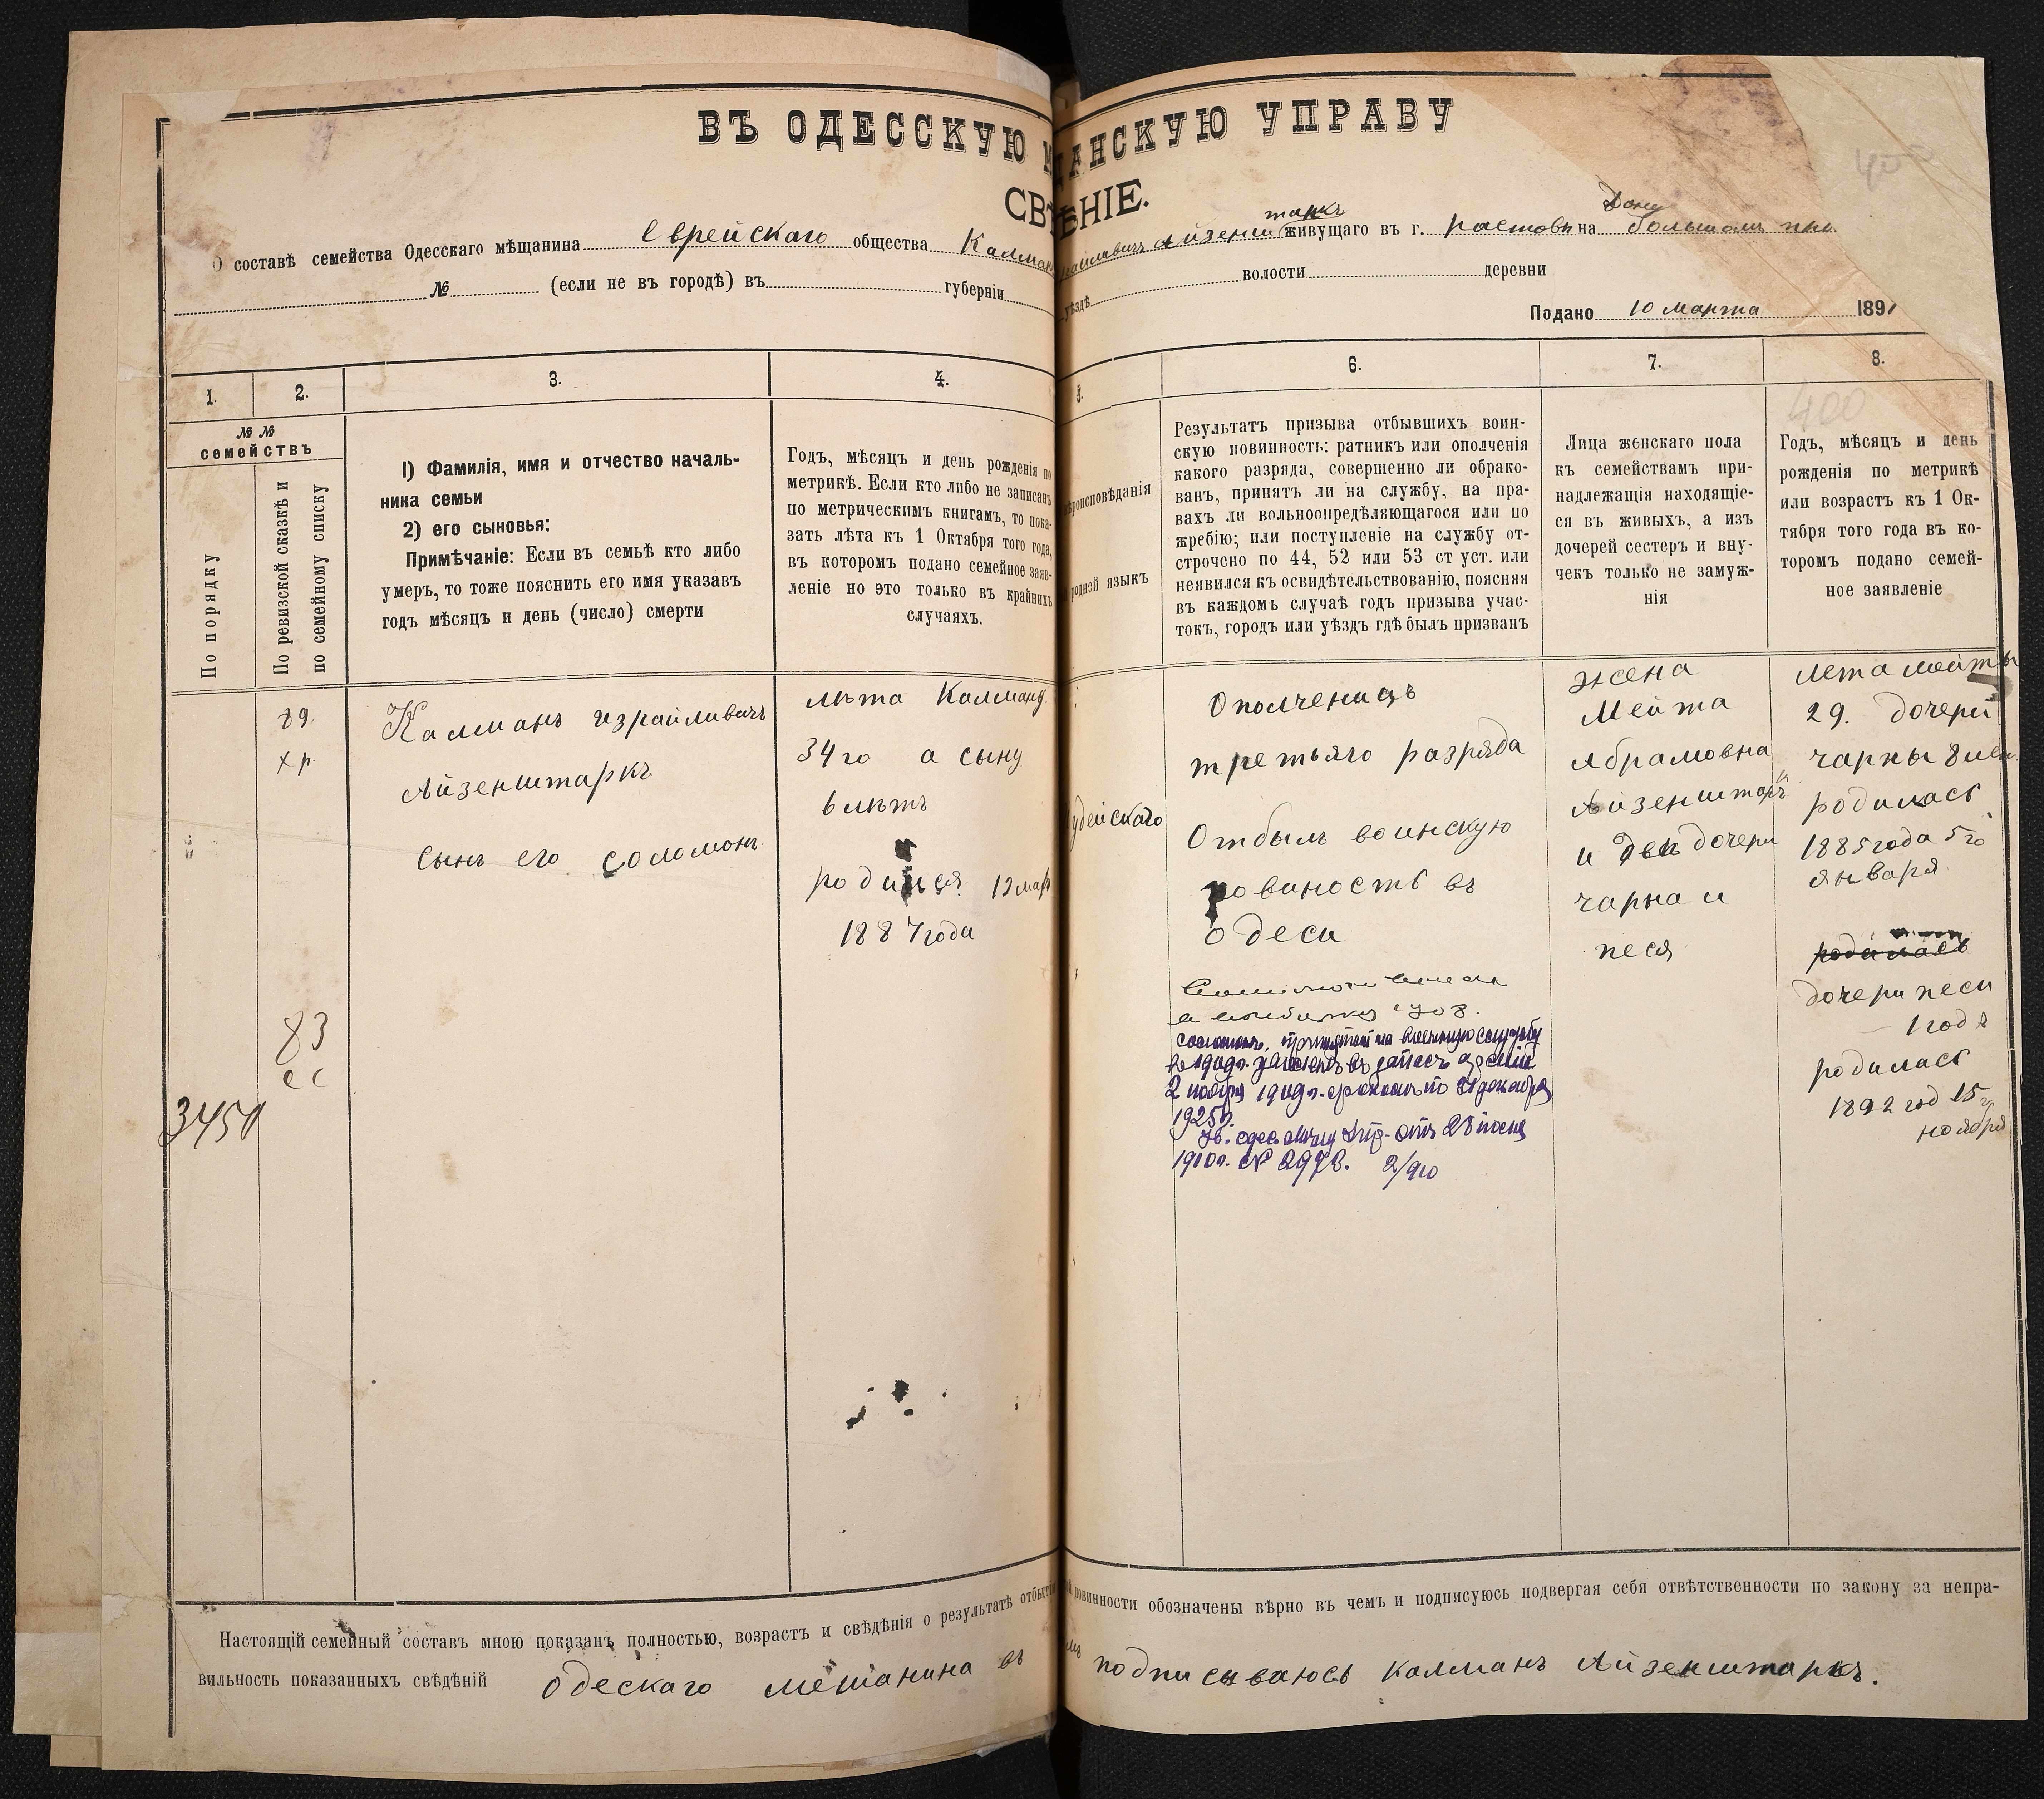 ВЪ ОДЕССКУЮ ДАНСКУЮ УПРАВУ
СВѢНІЕ.
О составѣ семейства Одесскаго мѣщанина еврейскаго общества Калман Айзенштаркъ живущаго въ г. растови на Дону большом
№ (если не въ городѣ) въ губерніи уѣздѣ волости деревни
Подано 10 марта 189
1.
2.
3.
4.
5.
6.
7.
8.
№ №
семействъ
По порядку
По ревизской сказкѣ и
по семейному списку
1) Фамилія, имя и отчество началь-
ника семьи
2) его сыновья:
Примѣчаніе: Если въ семьѣ кто либо
умеръ, то тоже пояснить его имя указавъ
годъ мѣсяцъ и день (число) смерти
Годъ, мѣсяцъ и день рожденія по
метрикѣ. Если кто либо не записанъ
по метрическимъ книгамъ, то пока-
зать лѣта къ 1 Октября того года,
въ которомъ подано семейное заяв-
леніе но это только въ крайнихъ
случаяхъ.
ѣроисповѣданія
родной языкъ
Результатъ призыва отбывшихъ воин-
скую повинность: ратникъ или ополченія
какого разряда, совершенно ли обрако-
ванъ, принятъ ли на службу, на пра-
вахъ ли вольноопредѣляющагося или по
жребію; или поступленіе на службу от-
строчено по 44, 52 или 53 ст уст. или
неявился къ освидѣтельствованію, поясняя
въ каждомъ случаѣ годъ призыва учас-
токъ, городъ или уѣздъ гдѣ былъ призванъ
Лица женскаго пола
къ семействамъ при-
надлежащія находящіе-
ся въ живыхъ, а изъ
дочерей сестеръ и вну-
чекъ только не замуж-
нія
400
Годъ, мѣсяцъ и день
рожденія по метрикѣ
или возрастъ къ 1 Ок-
тября того года въ ко-
торомъ подано семей-
ное заявленіе
89.
хр.
83
ее
3450
Калманъ израйливичъ
Айзенштаркъ
Сынъ его соломонъ
лѣта Калману
34 го а сыну
6 лѣтъ
родился 13 мар
1887 года
удейскаго
Ополченицъ
третьяго разряда
Отбылъ воинскую
повиность въ
Одеси
соломонъ, принятый на военную службу
въ 1909 г. уволенъ въ запасъ арміи
2 ноября 1909 г. срокомъ по 31 декабря
1925 г.
28 іюня
1910 г. № 2973. 2/910
жена
Мейта
Абрамовна
Айзенштаркъ
и две дочери
чарна и
песя
лета мейты
29. дочери
чарны 8 лѣт
родилась
1885 года 5 го
января
родилась
дочери песи
1 годъ
родилась
1892 год 15 го
ноября
Настоящій семейный составъ мною показанъ полностью, возрастъ и свѣдѣнія о результатѣ отбытія повинности обозначены вѣрно въ чемъ и подписуюсь подвергая себя отвѣтственности по закону за непра-
вильность показанныхъ свѣдѣній одескаго мещанина въ подписываюсь калманъ Айзенштаркъ.